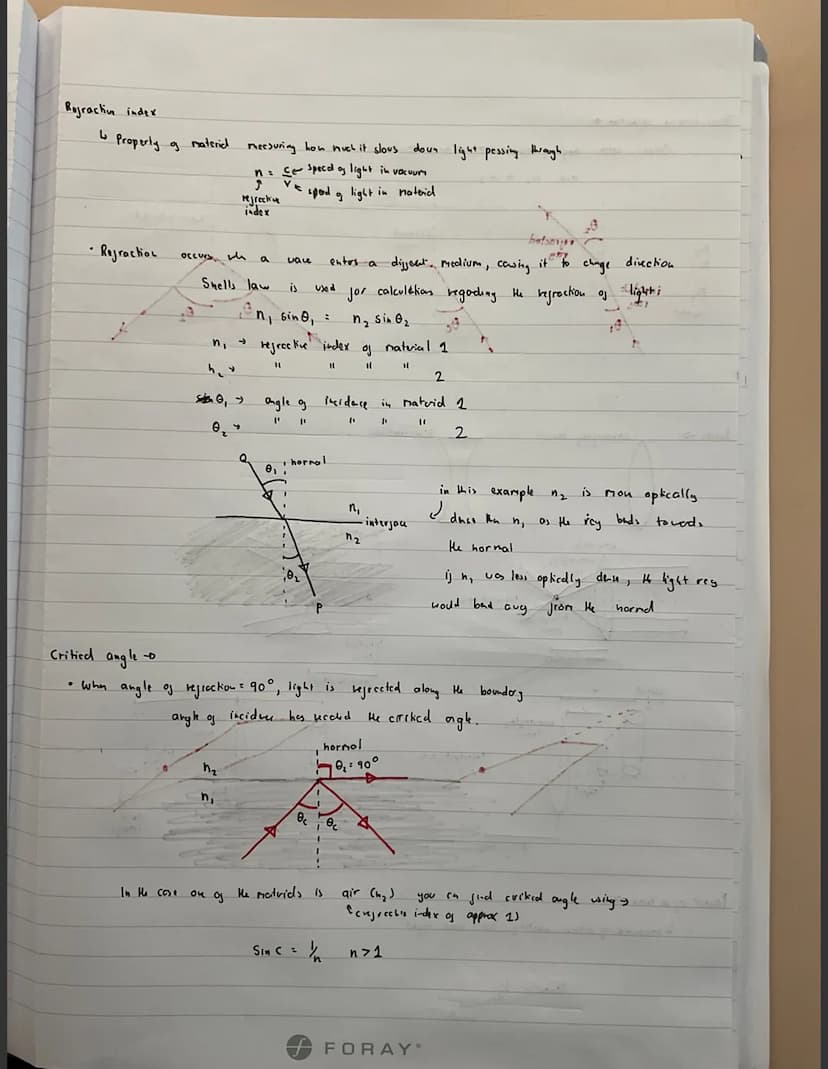 Refractive index
↳ Property of material measuring how much it slows down light passing through
n = c ← speed of light in vacuum
v ← speed of light in material
↑
refractive
index
• Refraction occurs when a wave enters a different medium, causing it to change direction
Snells law is used for calculations regarding the refraction of light:
n₁ sinθ₁ = n₂ sinθ₂
n₁ → refractive index of material 1
n₂ → " " " " 2
θ₁ → angle of incidence in material 1
θ₂ → " " " " " 2
Q
θ₁ normal
n₁
interface
n₂
θ₂
P
in this example n₂ is more optically
dense than n₁ as the ray bends towards
the normal
if n₁ was less optically dense, the light ray
would bend away from the normal
Critical angle →
• When angle of refraction = 90°, light is refracted along the boundary
angle of incidence has reached the critical angle.
normal
n₂ θ₂ = 90°
n₁
θc θc
In the case one of the materials is air (n₂) you can find critical angle using →
↑ (refractive index of approx 1)
Sin C = 1/n n > 1
FORAY®